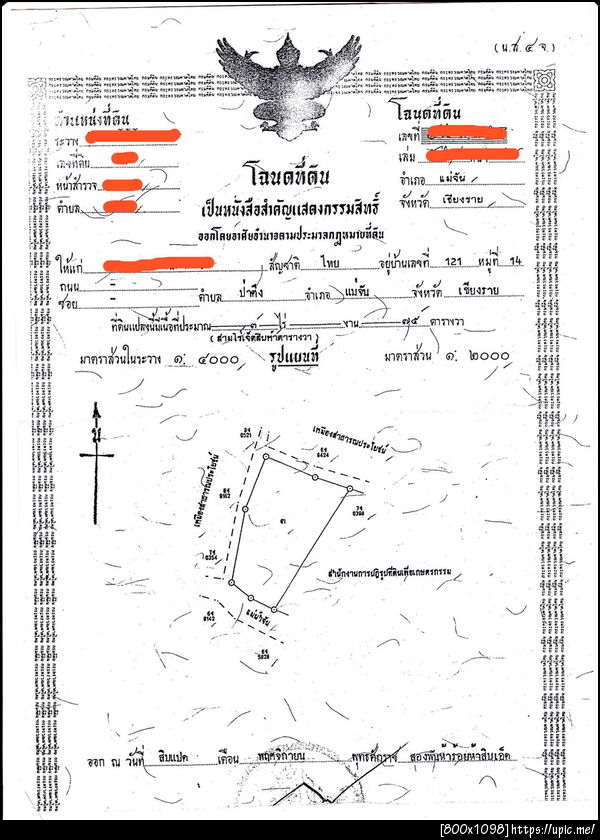 (น.ส. ๔ จ.)
ตำแหน่งที่ดิน
ระวาง
เลขที่ดิน
หน้าสำรวจ
ตำบล
โฉนดที่ดิน
เลขที่
เล่ม
อำเภอ แม่จัน
จังหวัด เชียงราย
โฉนดที่ดิน
เป็นหนังสือสำคัญแสดงกรรมสิทธิ์
ออกโดยอาศัยอำนาจตามประมวลกฎหมายที่ดิน
ให้แก่ สัญชาติ ไทย อยู่บ้านเลขที่ 121 หมู่ที่ 14
ถนน - ตำบล ป่าตึง อำเภอ แม่จัน จังหวัด เชียงราย
ซอย -
ที่ดินแปลงนี้มีเนื้อที่ประมาณ ๓ ไร่ - งาน ๗๕ ตารางวา
(สามไร่เจ็ดสิบห้าตารางวา)
มาตราส่วนในระวาง ๑: ๔๐๐๐ รูปแผนที่ มาตราส่วน ๑: ๒๐๐๐
เหมืองสาธารณประโยชน์
เหมืองสาธารณประโยชน์
๓
สำนักงานการปฏิรูปที่ดินเพื่อเกษตรกรรม
แม่น้ำจัน
ออก ณ วันที่ สิบแปด เดือน พฤศจิกายน พุทธศักราช สองพันห้าร้อยห้าสิบเอ็ด
[800x1098]https://upic.me/